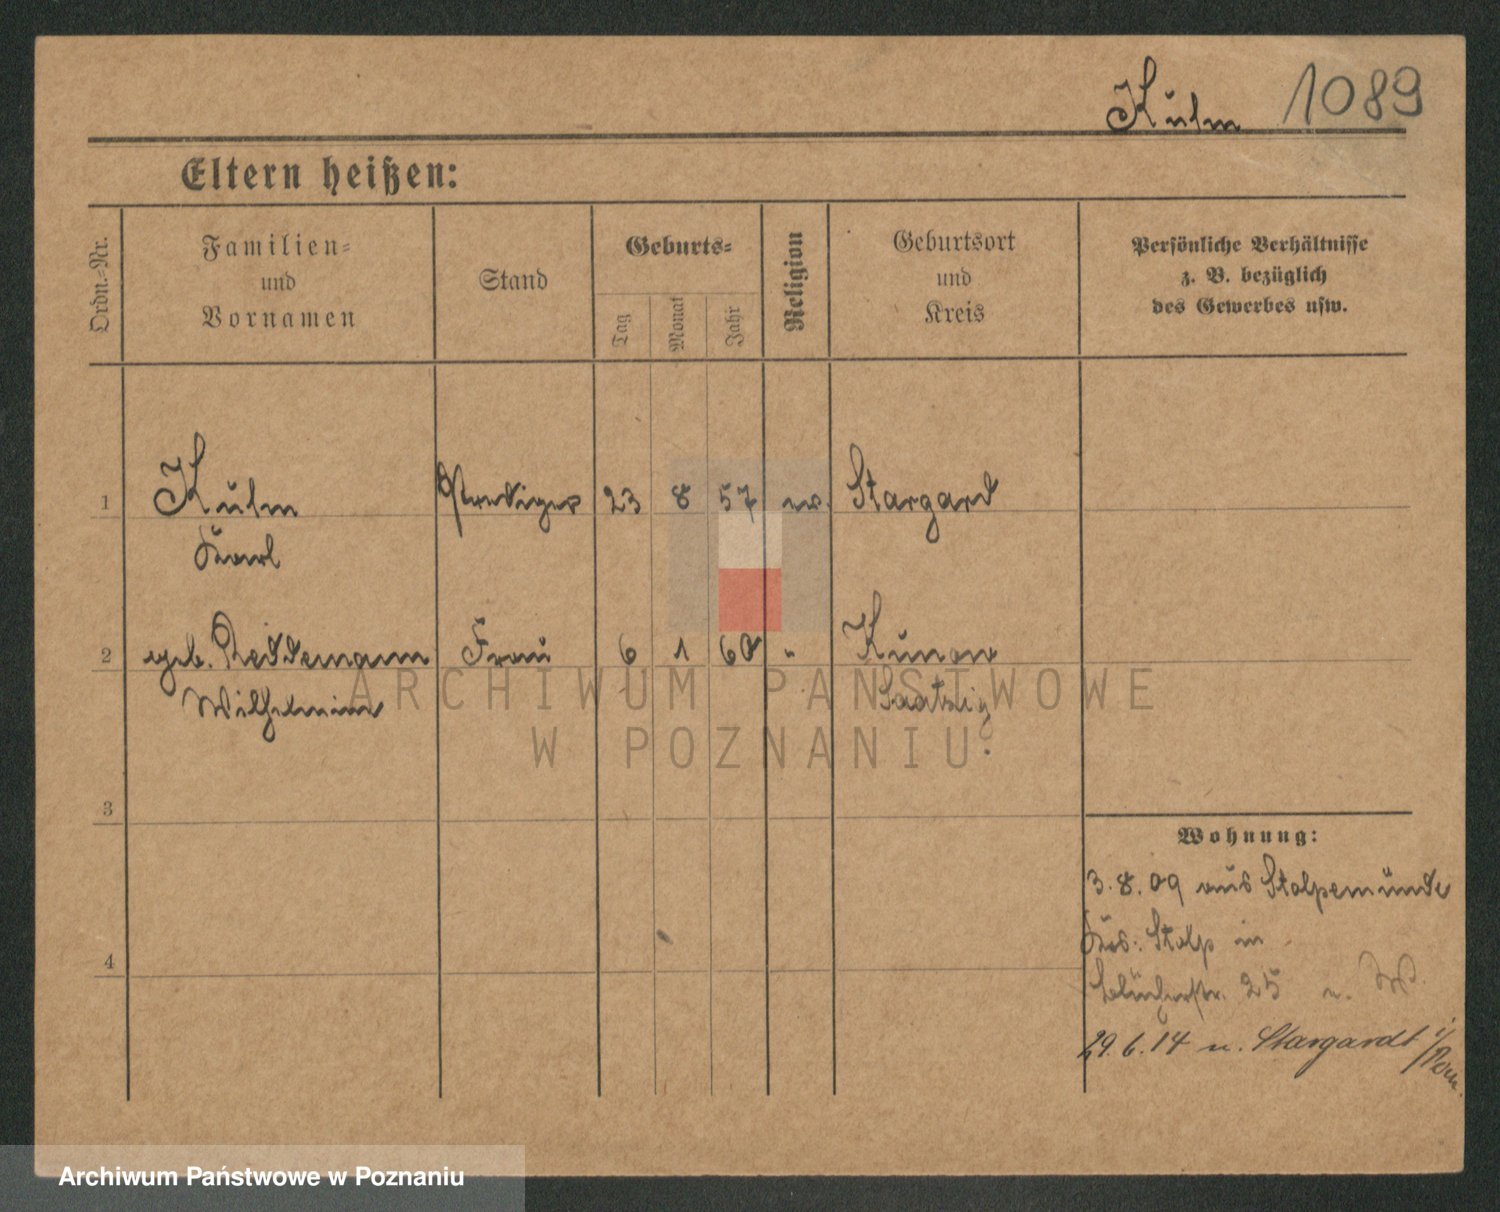 Kulm 1089
Eltern heißen:
Ordn.-Nr.
Familien-
und
Vornamen
Stand
Geburts-
Tag
Monat
Jahr
Religion
Geburtsort
und
Kreis
Persönliche Verhältnisse
z. B. bezüglich
des Gewerbes usw.
1 Kulm Prediger 23 8 57 ev. Stargard
Karl
2 geb. Reddemann Frau 6 1 60 " Kunow
Wilhelmine Saatzig
ARCHIWUM PAŃSTWOWE
W POZNANIU
3
Wohnung:
3.8.09 aus Stolpemünde
Krs. Stolp in
4
Blücherstr. 25 n. W.
29.6.14 n. Stargardt i/Pom.
Archiwum Państwowe w Poznaniu